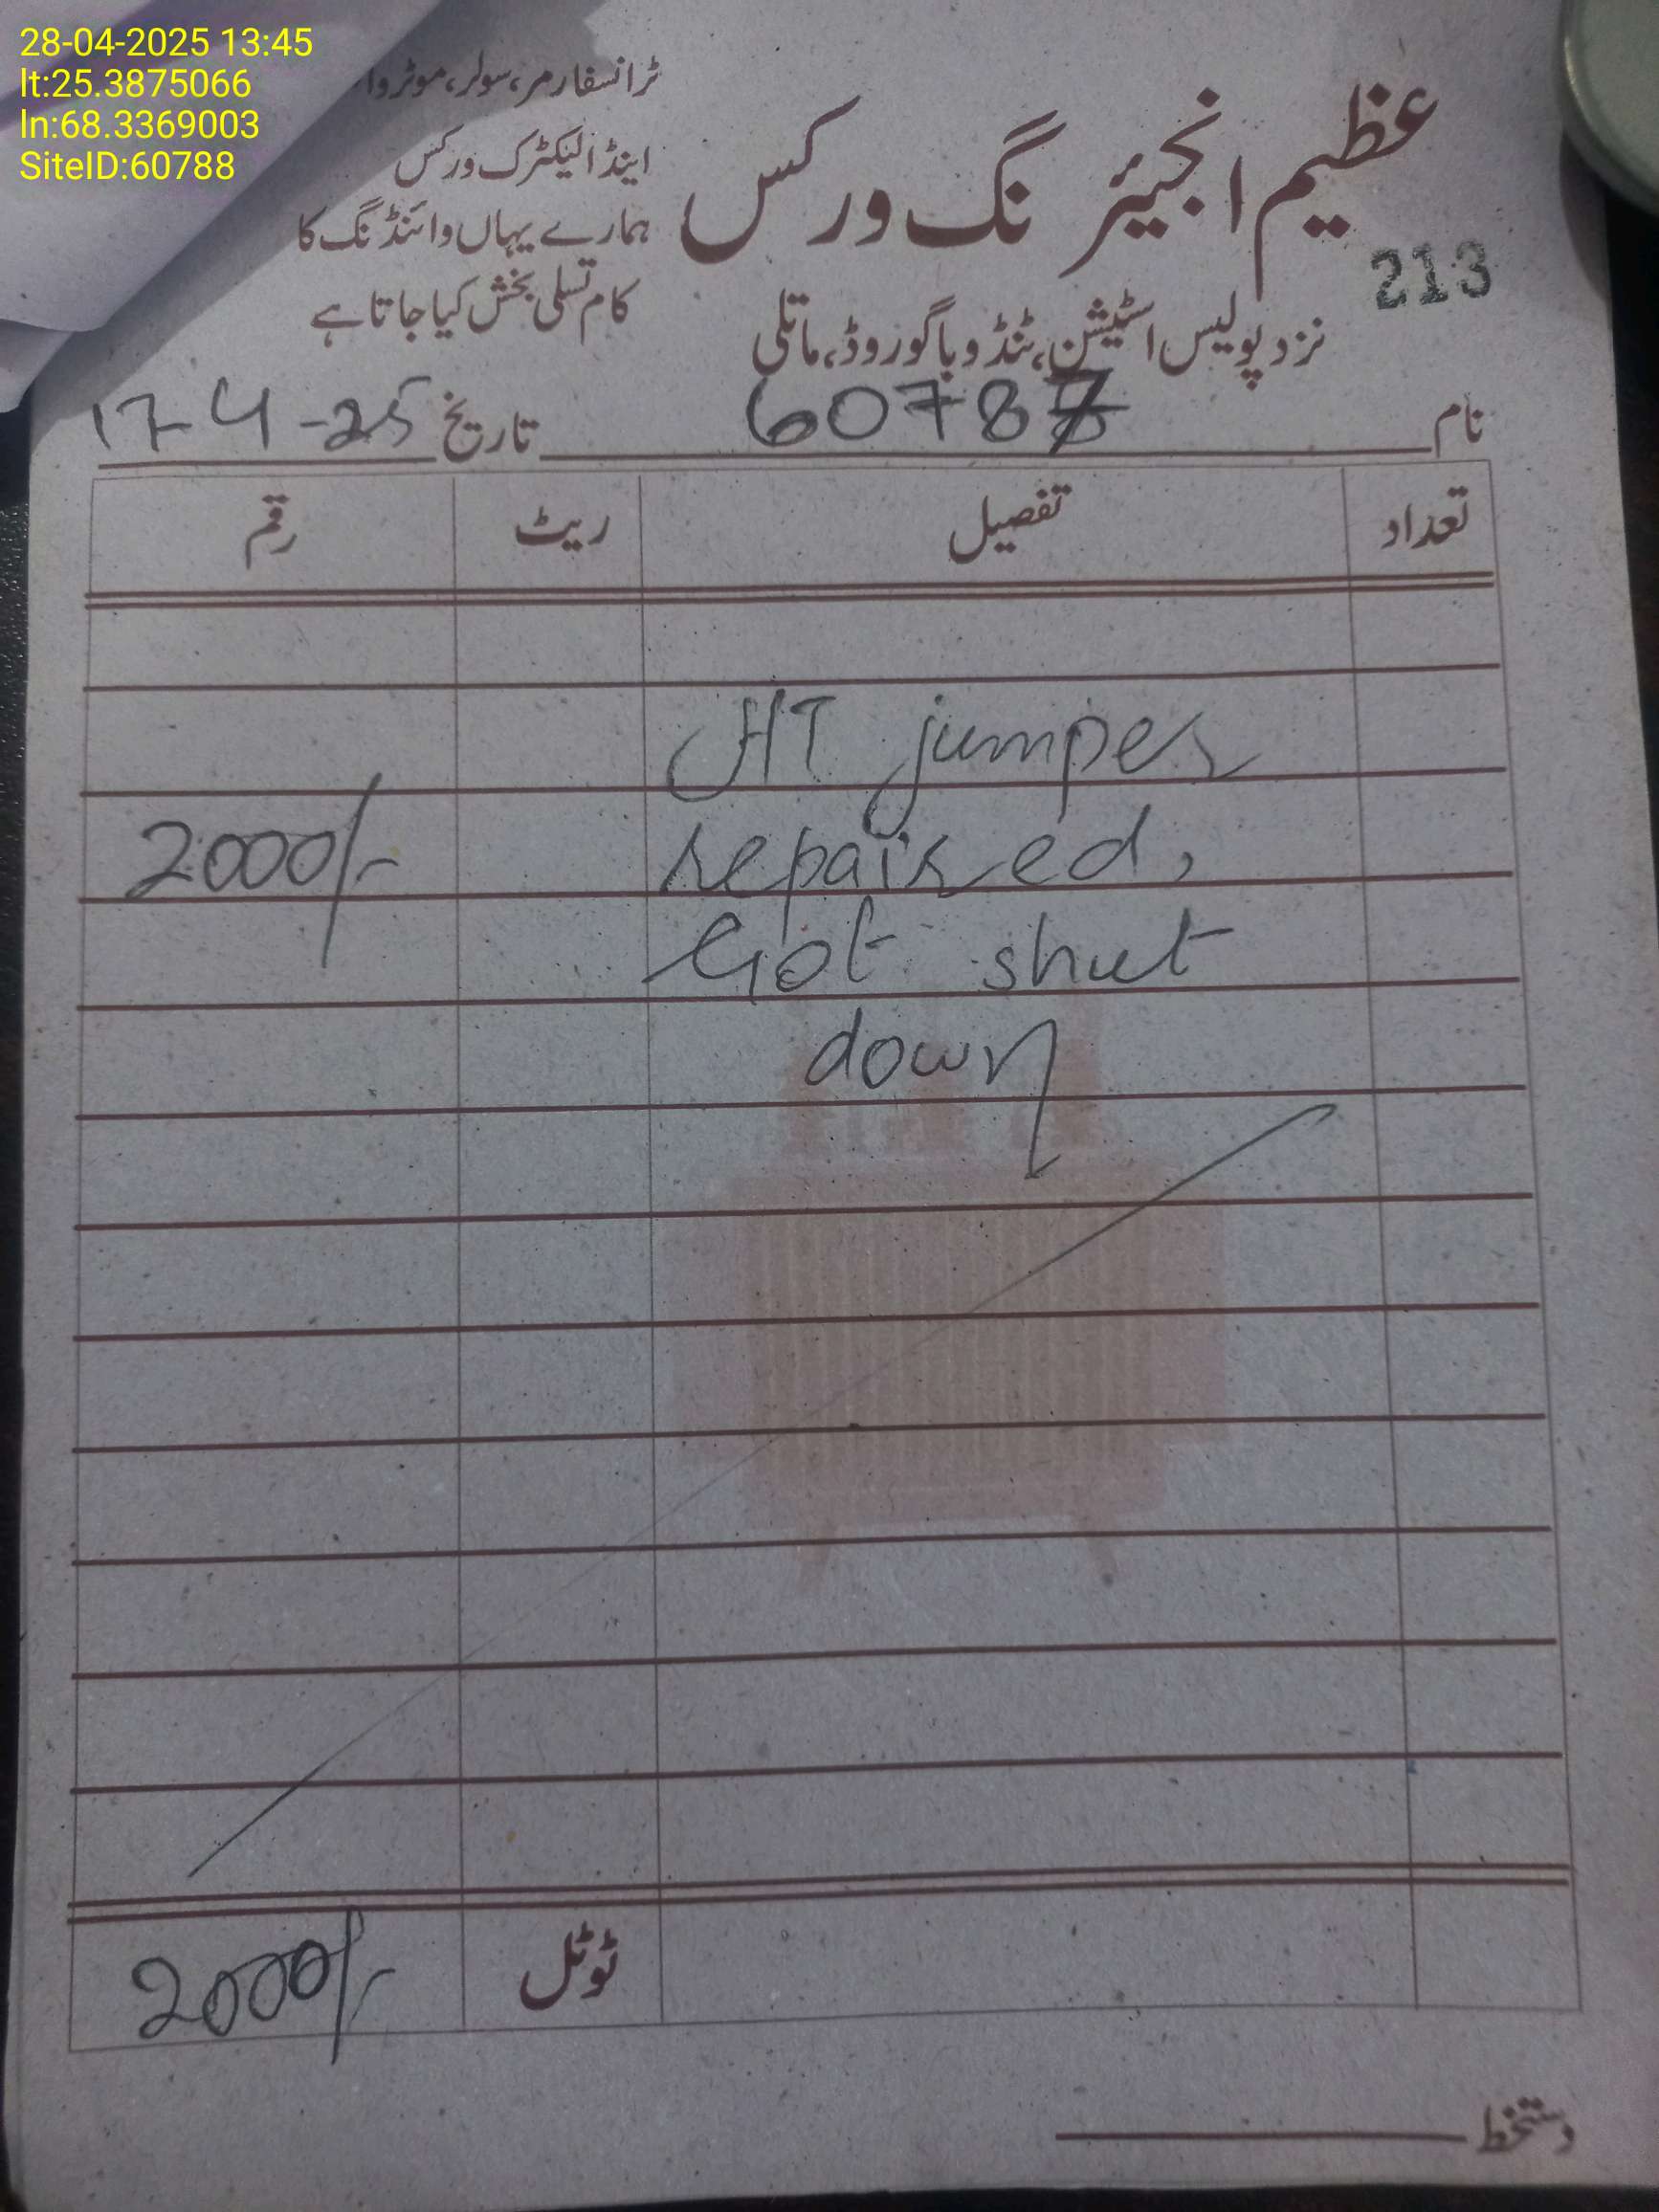 28-04-2025 13:45
lt:25.3875066
ln:68.3369003
SiteID:60788
عظیم انجیئرنگ ورکس
ٹرانسفارمر، سولر، موٹر وا
اینڈ الیکٹرک ورکس
ہمارے یہاں وائنڈنگ کا
کام تسلی بخش کیا جاتا ہے
213
نزد پولیس اسٹیشن، ٹنڈو باگو روڈ، ماتلی
نام 60788 تاریخ 17-4-25
تعداد تفصیل ریٹ رقم
HT jumper
repaired, 2000/-
Got shut
down
ٹوٹل 2000/-
دستخط